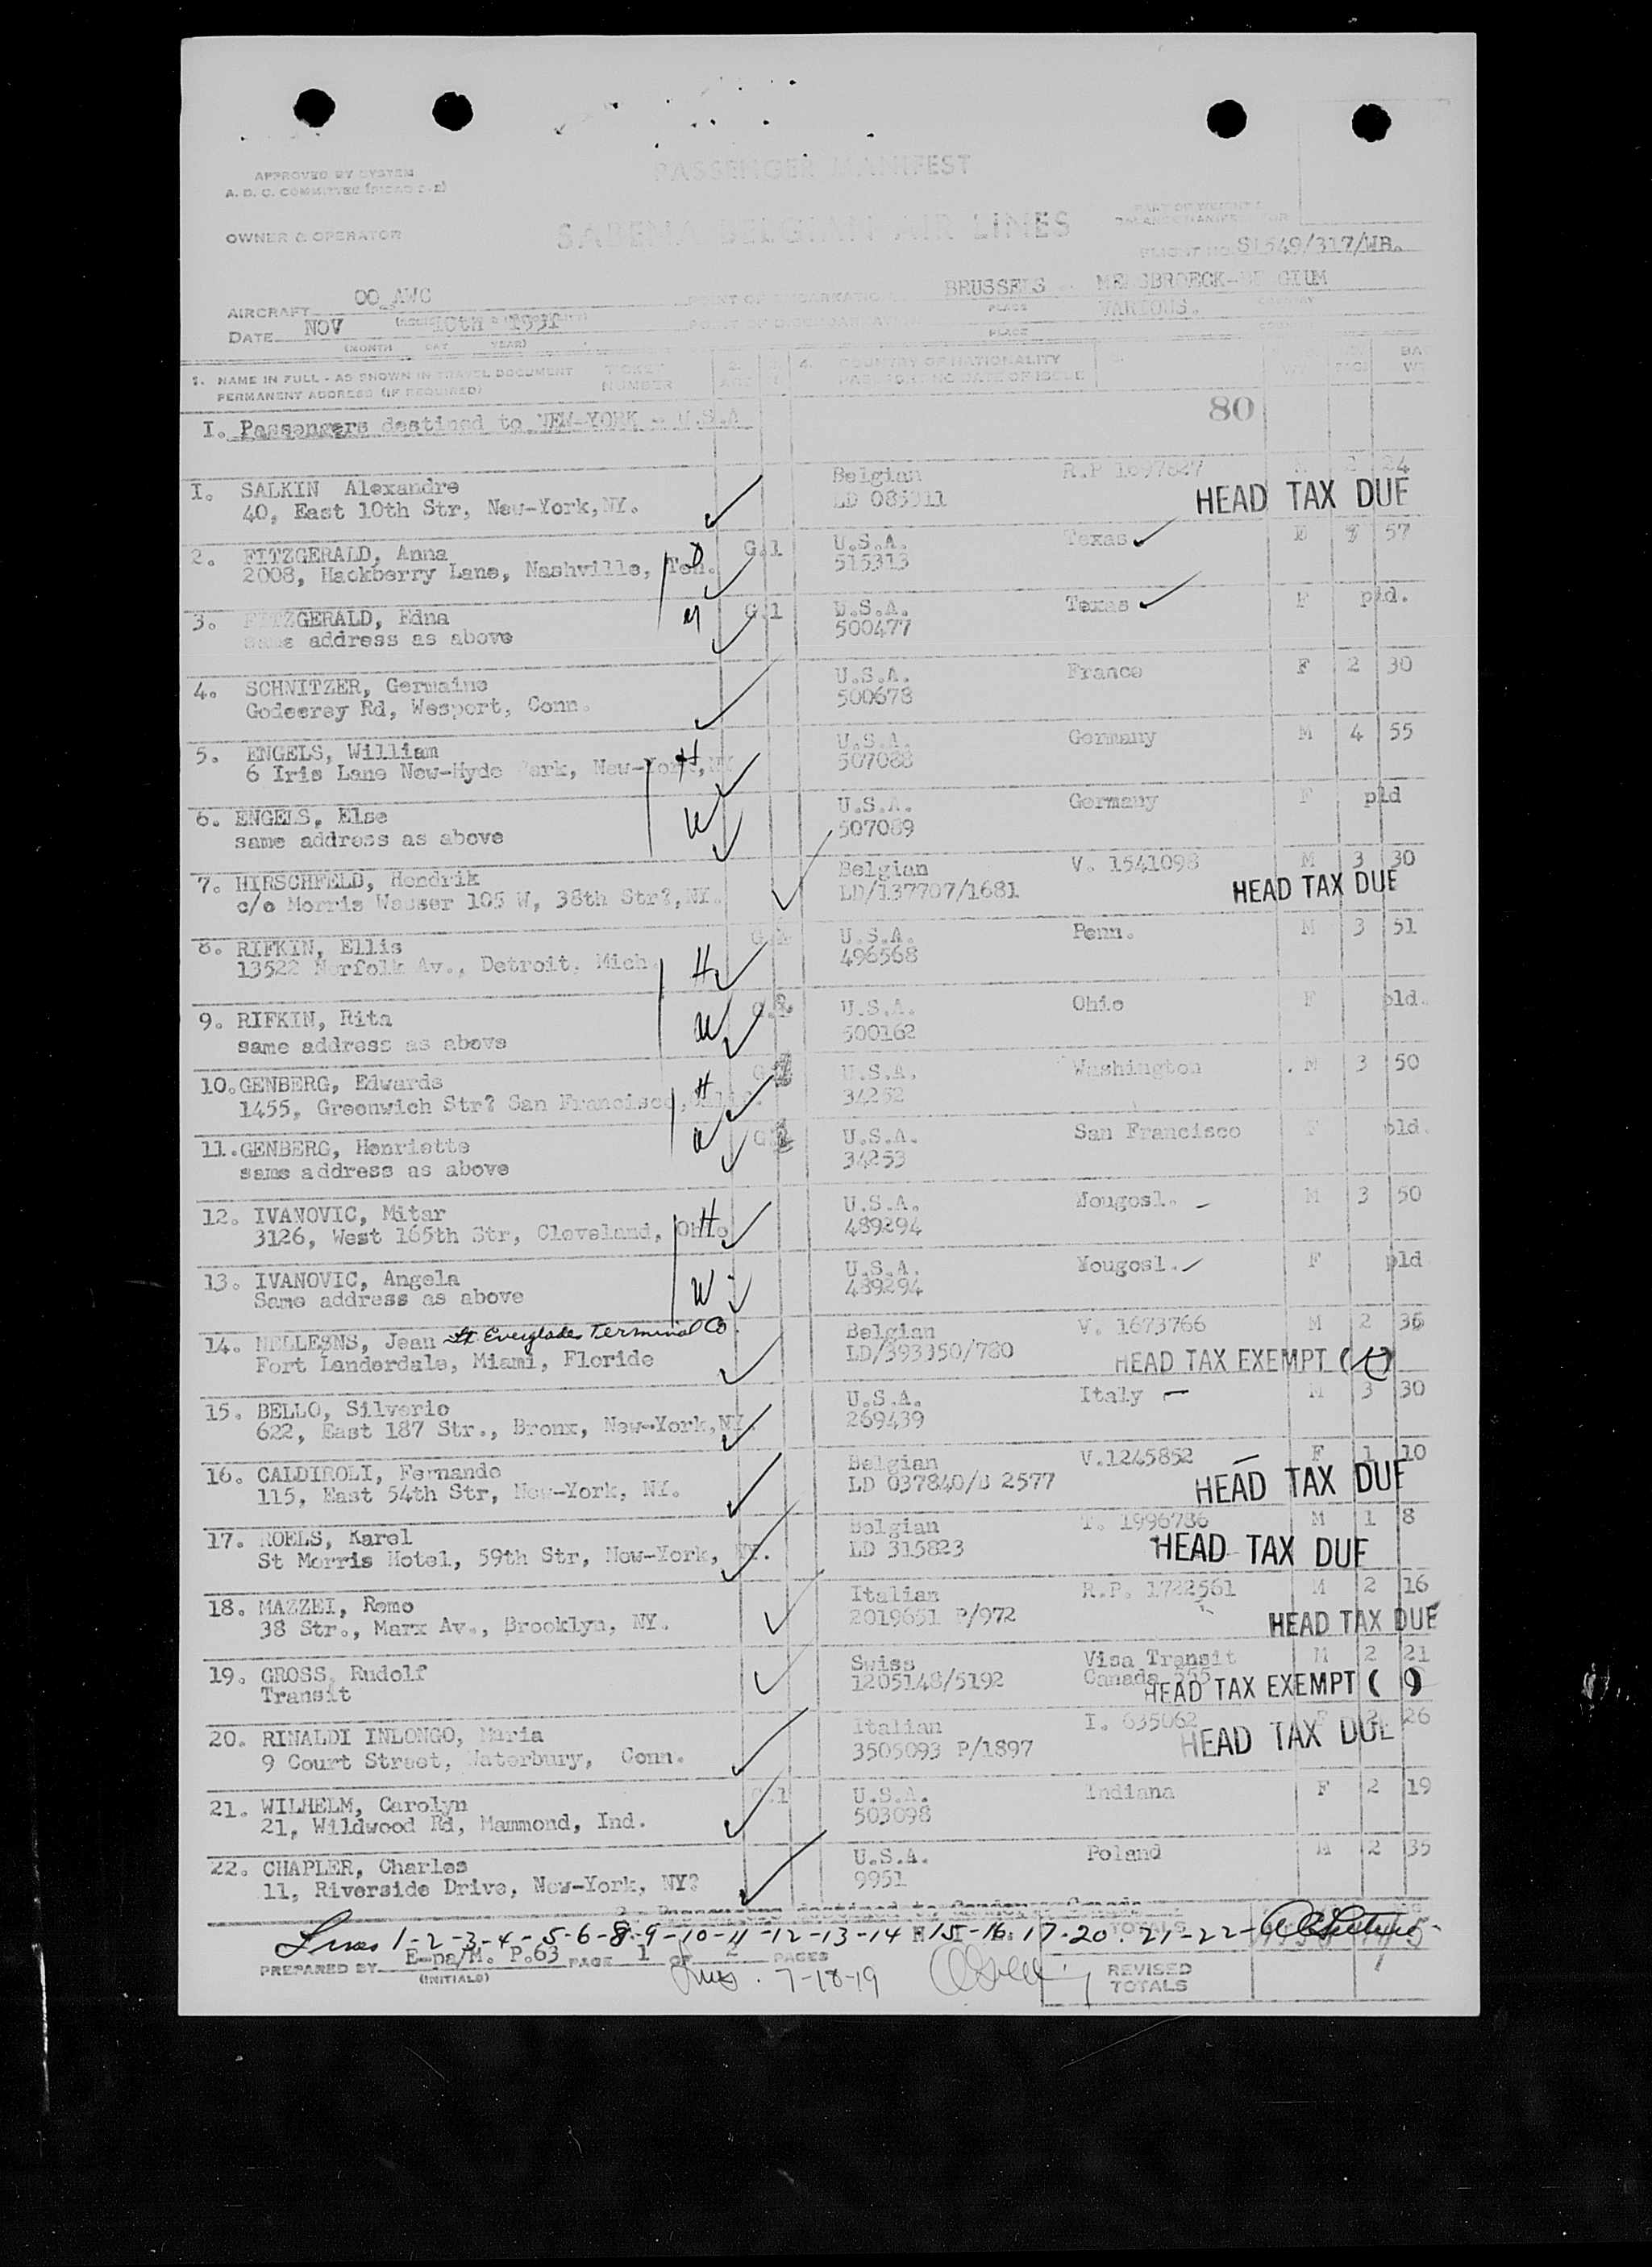 APPROVED BY SYSTEM
A. D. C. COMMITTEE
PASSENGER MANIFEST
OWNER & OPERATOR
SABENA BELGIAN AIR LINES
FLIGHT NO. S1549/317/WB.
AIRCRAFT OO AWC
POINT OF EMBARKATION BRUSSELS - MELSBROECK-BELGIUM
PLACE COUNTRY
DATE NOV 10th 1951
VARIOUS.
(MONTH DAY YEAR)
PLACE
1. NAME IN FULL - AS SHOWN IN TRAVEL DOCUMENT TICKET NUMBER 2. AGE 4. COUNTRY OF NATIONALITY
PERMANENT ADDRESS (IF REQUIRED) PASSPORT NO DATE OF ISSUE
I. Passengers destined to NEW-YORK - U.S.A
80
I. SALKIN Alexandre Belgian R.P 1697827 M 2 24
40, East 10th Str, New-York,NY. LD 085311 HEAD TAX DUE
2. FITZGERALD, Anna G.1 U.S.A. Texas 57
2008, Hackberry Lane, Nashville, Ten. 515313
3. FITZGERALD, Edna G.1 U.S.A. Texas F pld.
same address as above 500477
4. SCHNITZER, Germaine U.S.A. France F 2 30
Godeerey Rd, Wesport, Conn. 500678
5. ENGELS, William H U.S.A. Germany M 4 55
6 Iris Lane New-Hyde Park, New-York,NY 507088
6. ENGELS, Else W U.S.A. Germany F pld
same address as above 507089
7. HIRSCHFELD, Hendrik Belgian V. 1541098 M 3 30
c/o Morris Wasser 105 W, 38th Str?,NY. LD/137707/1681 HEAD TAX DUE
8. RIFKIN, Ellis H U.S.A. Penn. M 3 51
13522 Norfolk Av., Detroit, Mich. 496568
9. RIFKIN, Rita W U.S.A. Ohio F pld.
same address as above 500162
10. GENBERG, Edwards H U.S.A. Washington M 3 50
1455, Greenwich Str? San Francisco,Calif. 34252
11. GENBERG, Henriette W U.S.A. San Francisco F pld.
same address as above 34253
12. IVANOVIC, Mitar H U.S.A. Yougosl. M 3 50
3126, West 165th Str, Cleveland, Ohio 489294
13. IVANOVIC, Angela W U.S.A. Yougosl. F pld
Same address as above 489294
14. MELLESNS, Jean Ft Everglades Terminal Co. Belgian V. 1673766 M 2 36
Fort Landerdale, Miami, Floride LD/393350/780 HEAD TAX EXEMPT ( )
15. BELLO, Silverio U.S.A. Italy M 3 30
622, East 187 Str., Bronx, New-York,NY. 269439
16. CALDIROLI, Fernande Belgian V.1245852 F 1 10
115, East 54th Str, New-York, NY. LD 037840/D 2577 HEAD TAX DUE
17. ROELS, Karel Belgian T. 1996786 M 1 8
St Morris Hotel, 59th Str, New-York, NY. LD 315823 HEAD TAX DUE
18. MAZZEI, Remo Italian R.P. 1722561 M 2 16
38 Str., Marx Av., Brooklyn, NY. 2019651 P/972 HEAD TAX DUE
19. GROSS, Rudolf Swiss Visa Transit M 2 21
Transit 1205148/5192 Canada 355 HEAD TAX EXEMPT ( )
20. RINALDI INLONGO, Maria Italian I. 635062 F 2 26
9 Court Street, Waterbury, Conn. 3505093 P/1897 HEAD TAX DUE
21. WILHELM, Carolyn G.1 U.S.A. Indiana F 2 19
21, Wildwood Rd, Mammond, Ind. 503098
22. CHAPLER, Charles U.S.A. Poland M 2 35
11, Riverside Drive, New-York, NY? 9951
2. Passengers destined to Gander - Canada
Lines 1-2-3-4-5-6-8-9-10-11-12-13-14 15-16-17-20-21-22-
TOTALS
PREPARED BY E-pa/M. P.63 PAGE 1 OF 2 PAGES
(INITIALS)
Lines. 7-18-19
REVISED TOTALS